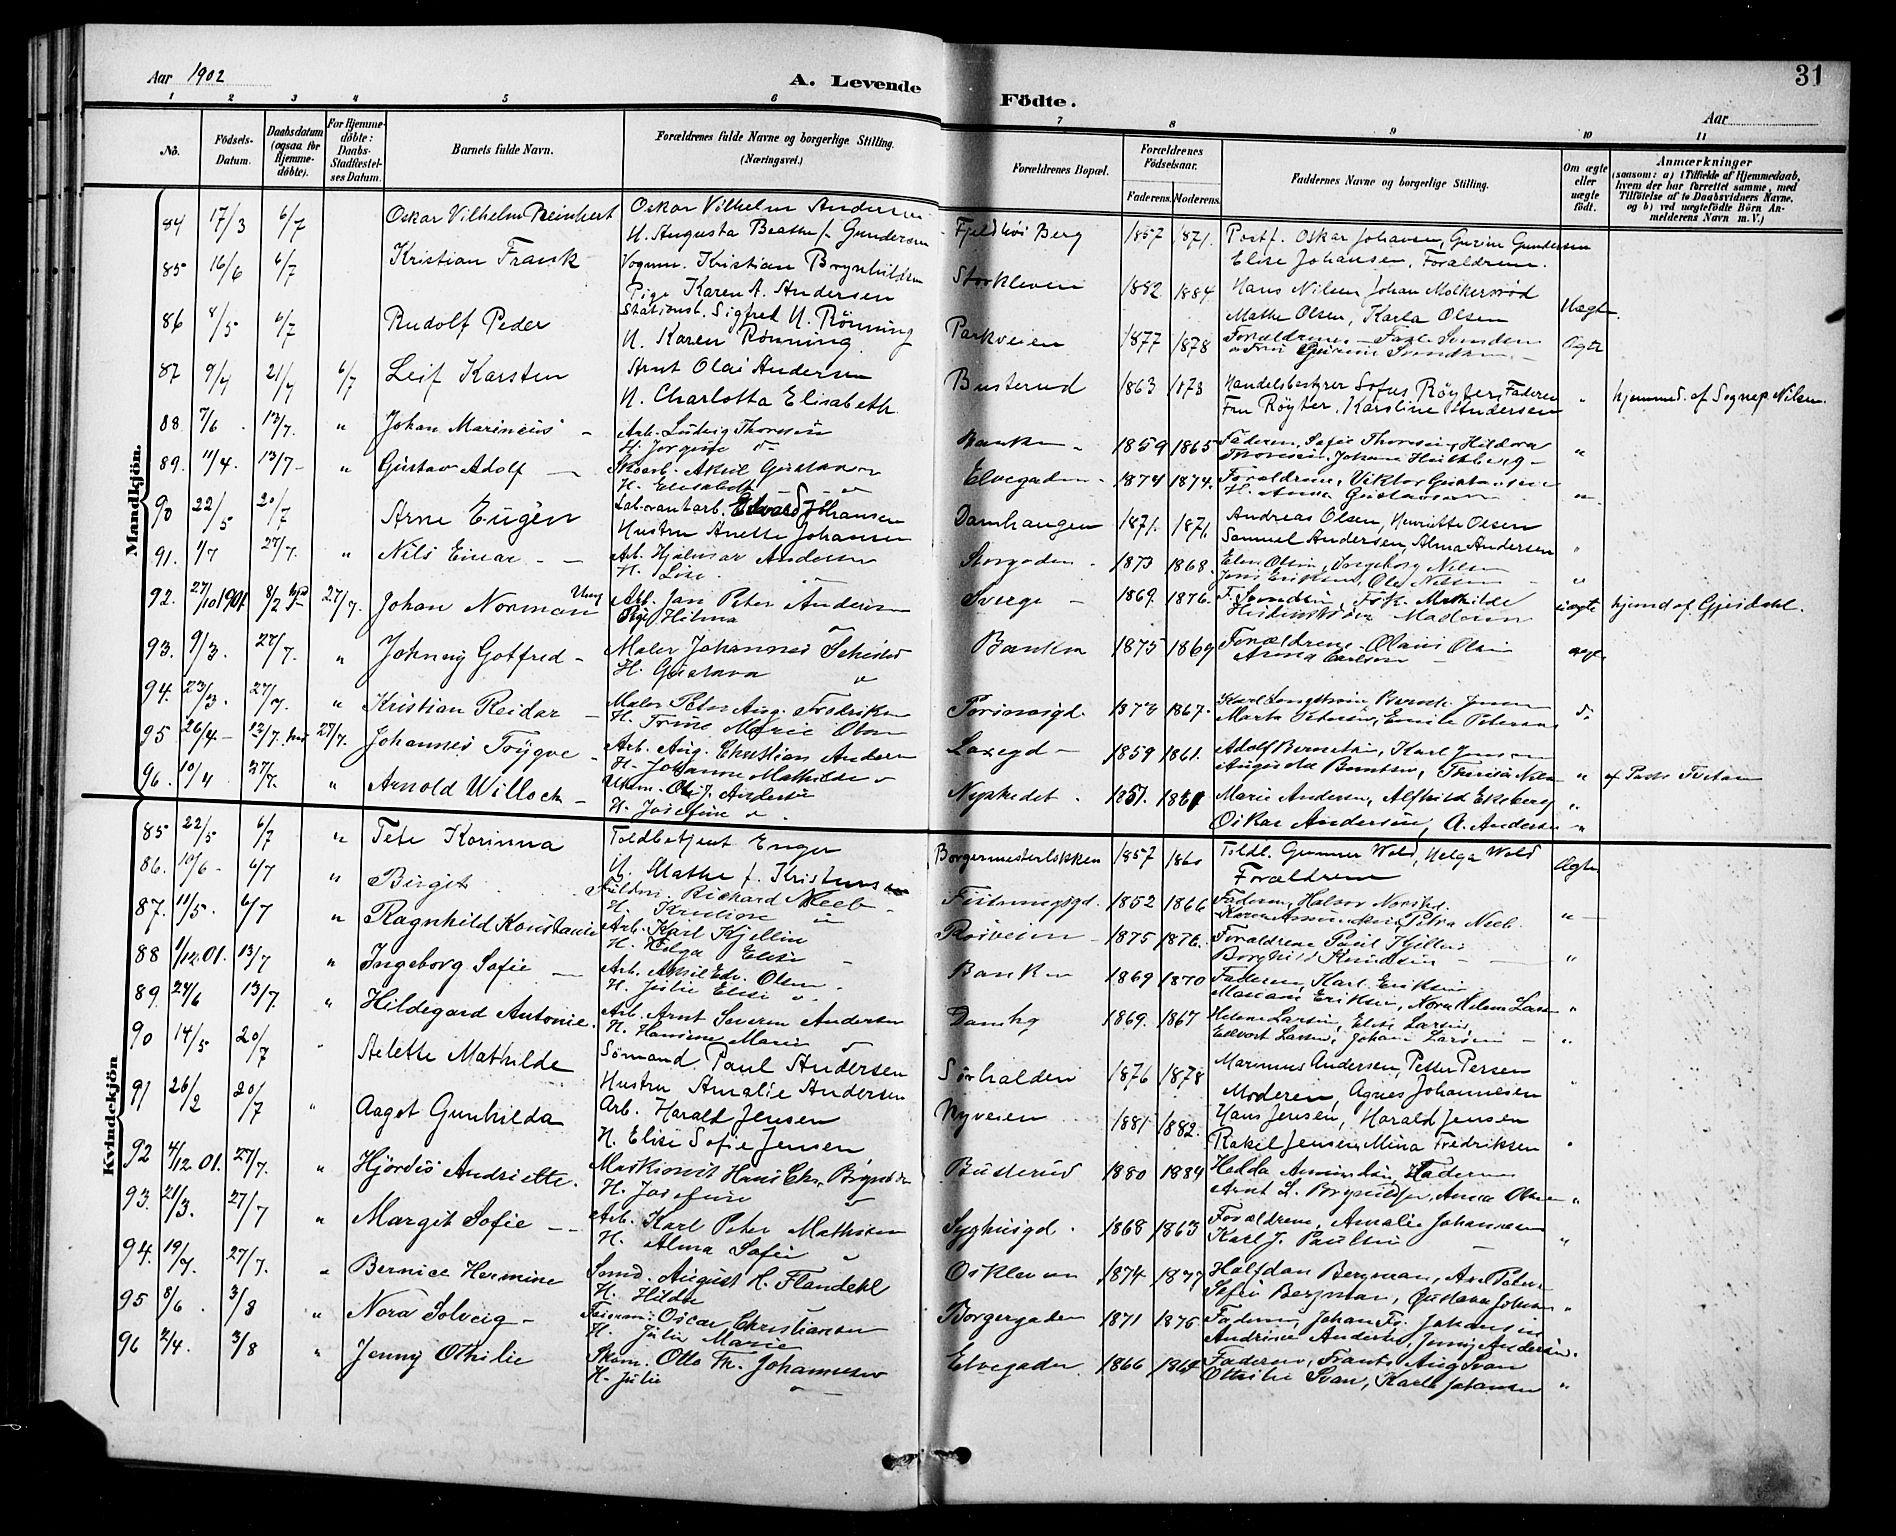 Aar 1902
A. Levende Födte.
Aar
31
1 2 3 4 5 6 7 8 9 10 11
No.
Födsels-Datum.
Daabsdatum (ogsaa for Hjemme-döbte).
For Hjemme-döbte: Daabs-Stadfæstel-ses Datum.
Barnets fulde Navn.
Forældrenes fulde Navne og borgerlige Stilling. (Næringsvei.)
Forældrenes Bopæl.
Forældrenes Födselsaar.
Faderens. Moderens.
Faddernes Navne og borgerlige Stilling.
Om ægte eller uægte födt.
Anmærkninger
(saasom: a) i Tilfælde af Hjemmedaab, hvem der har forrettet samme, med Tilföielse af to Daabsvidners Navne, og b) ved uægtefödte Börn An-melderens Navn m. V.)
Mandkjön.
84 17/3 6/7 Oskar Vilhelm Reinhert Oskar Vilhelm Andersen Fjeldhöi Berg 1857 1871. Postf. Oskar Johansen, Gurine Gundersen
H. Augusta Beathe f. Gundersen Elise Johansen, Forældrene.
85 16/6 6/7 Kristian Frank Vognm. Kristian Brynhildsen Storkleven 1882 1884 Hans Nilsen Johan Molkersröd Uægte.
Pige Karen A. Andersen Mathe Olsen, Karla Olsen
86 8/5 6/7 Rudolf Peder Stationsb. Sigfred N. Rönning Parkveien 1877 1878 Forældrene Ægte
H. Karen Rönning
87 9/4 21/4 6/7 Leif Karsten Arnt Olai Andersen Busterud 1863 1873 Handelsbestyrer Sofus Röyter, Faderen " hjemmed. af Sognep. Nilsen.
H. Charlotta Elisabeth Fru Röyter, Karoline Andersen
88 7/6 13/7. " Johan Marineus Arb. Ludvig Thoresen Banken 1859 1865 Faderen, Sofie Thoresen, Hildora "
H. Jorgine
89. 11/4. 13/7 " Gustav Adolf Skoarb. Aksel Gustavsen Elvegaden 1874 1874. Forældrene, Viktor Gustavsen "
H. Elisabeth H. Anna Gustavsen
90 22/5 20/7 Arne Eugén Laborantarb. Edvard Johansen Damhaugen 1871. 1871. Andreas Olsen, Henriette Olsen
Hustru Anette Johansen Samuel Andersen, Alma Andersen "
91. 1/7 27/7. " Nils Einar Arb. Hjalmar Andersen Storgaden 1873 1868. Olsen, Ingeborg Nilsen "
H. Lise Eriksen, Ole Nilsen
92. 27/10 1901 8/2 27/7. Johan Norman Arb. Jan Peter Andersen Sverge 1869. 1876. F. Svendsen, Frk. Mathilde uægte hjemd af Gjesdahl.
Pige Hilma Moderen
93. 9/3. 27/7. " Johnny Gotfred Maler Johannes Banken 1875 1869 Forældrene Olaus Olsen ægte
H. Gustava Anna Carlsen
94. 23/3. 27/7. " Kristian Reidar Maler Peter Aug. Fredriksen 1867. Karl Jensen do
H. Trine Marie Olsen Marta Petersen, Emilie Petersen
95 26/4 12/7 27/7. Johannes Trygve Arb. Aug. Christian Andersen Laxegd 1859 1861. Adolf Berntsen, Karl Jensen " af
H. Johanne Mathilde Augusta Berntsen, Nilsen
96. 10/4 27/7. " Arnold Willoch Ole J. Andersen Nyskedet 1851. Marie Andersen, Alfhild Ekeberg "
H. Josefine Oskar Andersen, A. Andersen "
Kvindekjön
85 22/5 6/7 " Tete Korinna Toldbetjent Enger Borgermesterlökken 1857 1860 Toldb. Gunnar Wold, Helga Wold Ægte
H. Mathe f. Kristensen Forældrene
86. 10/6 6/7 " Birgit Richard Neeb 1852 1866 Faderen, Halvor "
H. Petra Neeb.
87. 11/5. 6/7 " Ragnhild Konstanse Arb. Karl Kjellin Rösveien 1875 1876. Forældrene Paul Kjellin
H. Helga Elise Borghild Knudsen "
88 1/12.01. 13/7 " Ingeborg Sofie Arb. Aksel Edv. Olsen Banken 1869 1870 Faderen, Karl Eriksen
H. Julie Elise Mariane Eriksen, Nora Larsen "
89. 24/6 13/7. " Hildegard Antonie. Arb. Arnt Severin Andersen Damhg 1869. 1867 Helene Larsen, Elise Larsen,
H. Hansine Marie Edvart Larsen, Johan Larsen "
90 14/5 20/7 Aelette Mathilde Sömand Paul Andersen Sörhalden 1876 1878 Marinus Andersen, Petter Persen
Hustru Amalie Andersen Moderen, Agnes Johannesen "
91 26/2 20/7 " Aagot Gunhilda Arb. Harald Jensen Nyveien 1881 1882. Hans Jensen, Harald Jensen
H. Elise Sofie Jensen Rakel Jensen, Mina Fredriksen "
92 4/12.01. 27/7. " Hjördis Andriette. Maskionist Hans Chr. Brynildsen Busterud 1880 1884 Hedda Amundsen, Faderen
H. Josefine Arnt L. Brynildsen, Anna Olsen "
93. 21/3. 27/7 " Margit Sofie Arb. Karl Peter Mathisen Syghusgd. 1868 1863 Forældrene, Amalie Johannesen
H. Alma Sofie Karl J. Paulsen "
94. 19/4. 27/7. " Bernice Hermine Smed. August H. Flandehl Oskleven 1874 1877 Halfdan Bergman, Axel Petersen
H. Hilda Sofie Bergman, Gustava Johansen "
95 8/6. 3/8 " Nora Solveig Oscar Christiansen Borgergaden 1871 1876 Faderen, Johan Fr. Johansen
H. Julie Marie Andrine Andersen, Jenny Andersen. "
96 2/4. 3/8 " Jenny Othilie Skom. Otto Th. Johannesen Elvegaden 1866 1864 Faderen, Frants Aug Svan
H. Julie Othilie Svan, Karl Johansen "